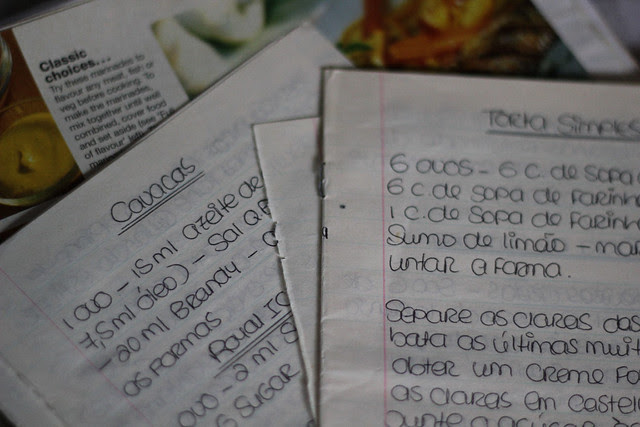 Classic
choices...
Try these marinades to
flavour any meat, fish or
veg before cooking. To
make the marinades,
mix together until well
combined, cover food
and set aside (see
of flavour'
Cavacas
1 ovo - 15ml azeite de
7,5ml óleo) - Sal Q.B
- 20 ml Brandy -
as formas
Royal
ovo - 2 ml
SUGAR
Torta Simples
6 ovos - 6 c. de sopa
6 c. de sopa de farinh
1 c. de sopa de farinh
Sumo de limão - mar
untar a forma.
Separe as claras das
bata as últimas muit
obter um creme fo
as claras em castel